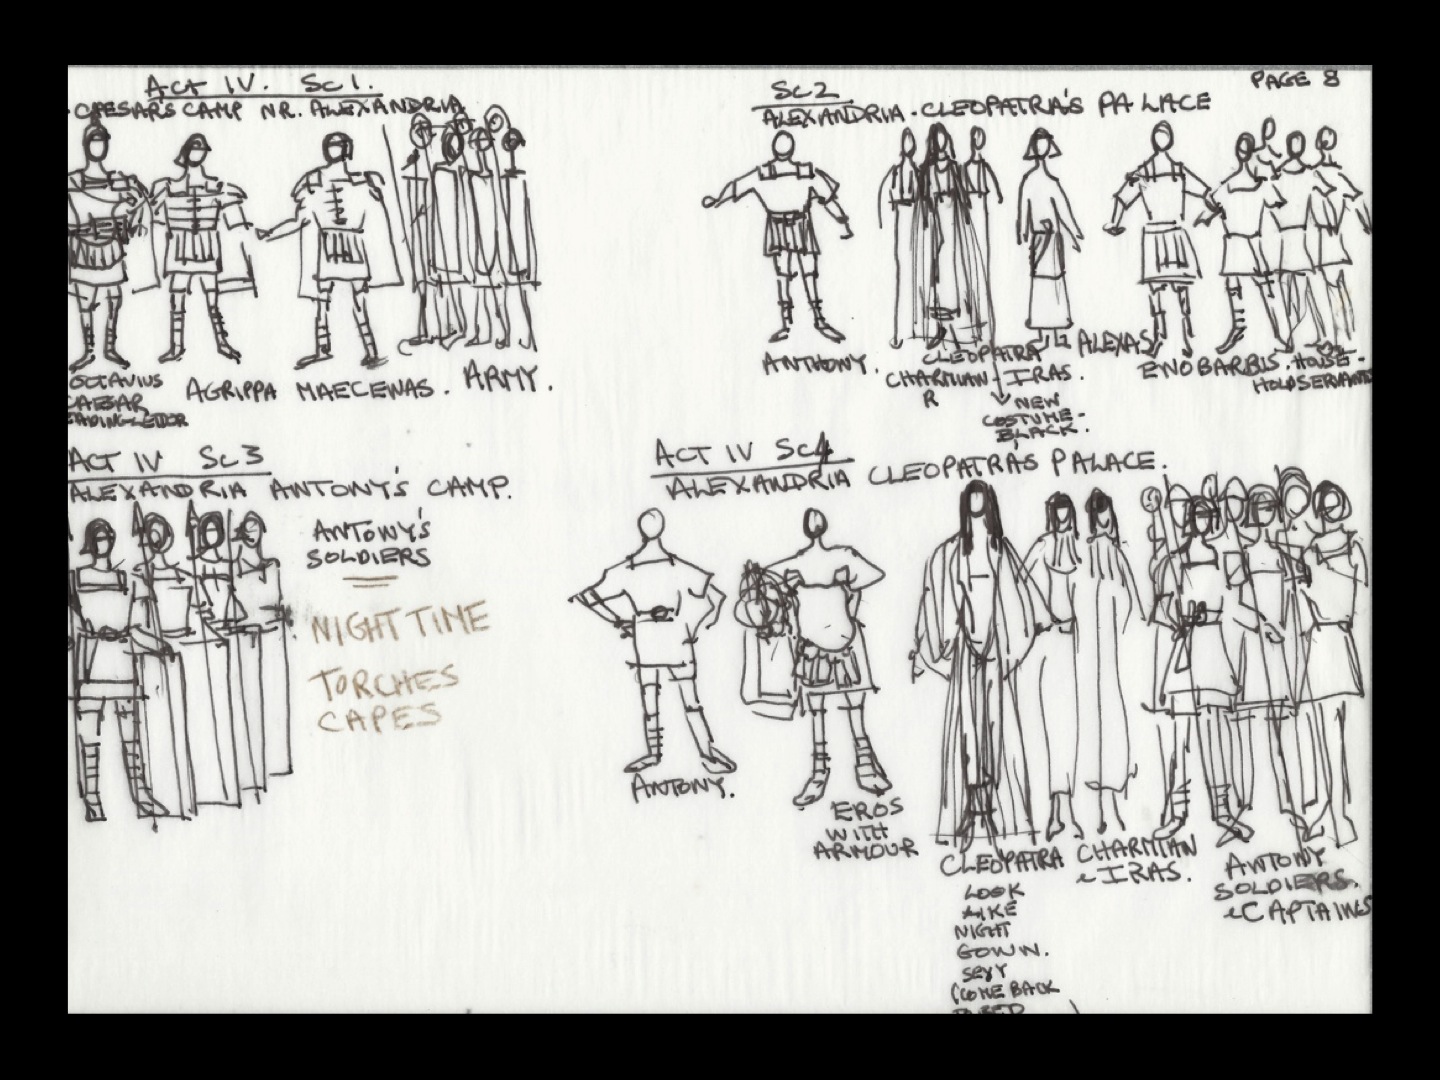 PAGE 8
ACT IV. Sc 1.
CAESAR'S CAMP NR. ALEXANDRIA
OCTAVIUS
CAESAR
AGRIPPA
MAECENAS.
ARMY.
Sc 2
ALEXANDRIA. CLEOPATRA'S PALACE
ANTHONY.
CLEOPATRA
CHARMIAN
R
IRAS.
NEW
COSTUME-
BLACK.
ALEXAS
ENOBARBUS.
HOUSE-
HOLD SERVANTS
ACT IV Sc 3
ALEXANDRIA ANTONY'S CAMP.
ANTONY'S
SOLDIERS
NIGHT TIME
TORCHES
CAPES
ACT IV Sc 4
ALEXANDRIA CLEOPATRA'S PALACE.
ANTONY.
EROS
WITH
ARMOUR
CLEOPATRA
LOOK
LIKE
NIGHT
GOWN.
SEXY
(COME BACK
TO BED
CHARMIAN
& IRAS.
ANTONY
SOLDIERS.
& CAPTAINS